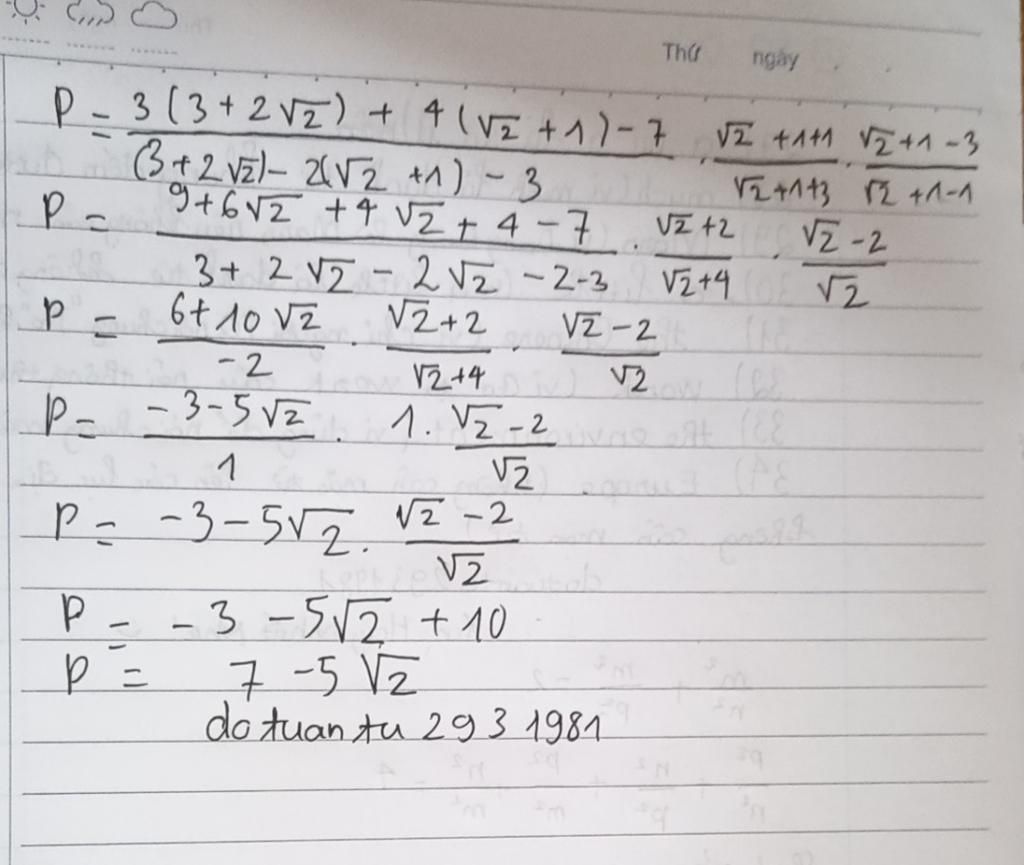 Thứ ngày
P = \frac{3(3+2\sqrt{2}) + 4(\sqrt{2}+1) - 7}{(3+2\sqrt{2}) - 2(\sqrt{2}+1) - 3} . \frac{\sqrt{2}+1+1}{\sqrt{2}+1+3} . \frac{\sqrt{2}+1-3}{\sqrt{2}+1-1}
P = \frac{9+6\sqrt{2}+4\sqrt{2}+4-7}{3+2\sqrt{2}-2\sqrt{2}-2-3} . \frac{\sqrt{2}+2}{\sqrt{2}+4} . \frac{\sqrt{2}-2}{\sqrt{2}}
P = \frac{6+10\sqrt{2}}{-2} . \frac{\sqrt{2}+2}{\sqrt{2}+4} . \frac{\sqrt{2}-2}{\sqrt{2}}
P = \frac{-3-5\sqrt{2}}{1} . 1 . \frac{\sqrt{2}-2}{\sqrt{2}}
P = -3-5\sqrt{2} . \frac{\sqrt{2}-2}{\sqrt{2}}
P = -3-5\sqrt{2}+10
P = 7-5\sqrt{2}
do tuan tu 29 3 1981